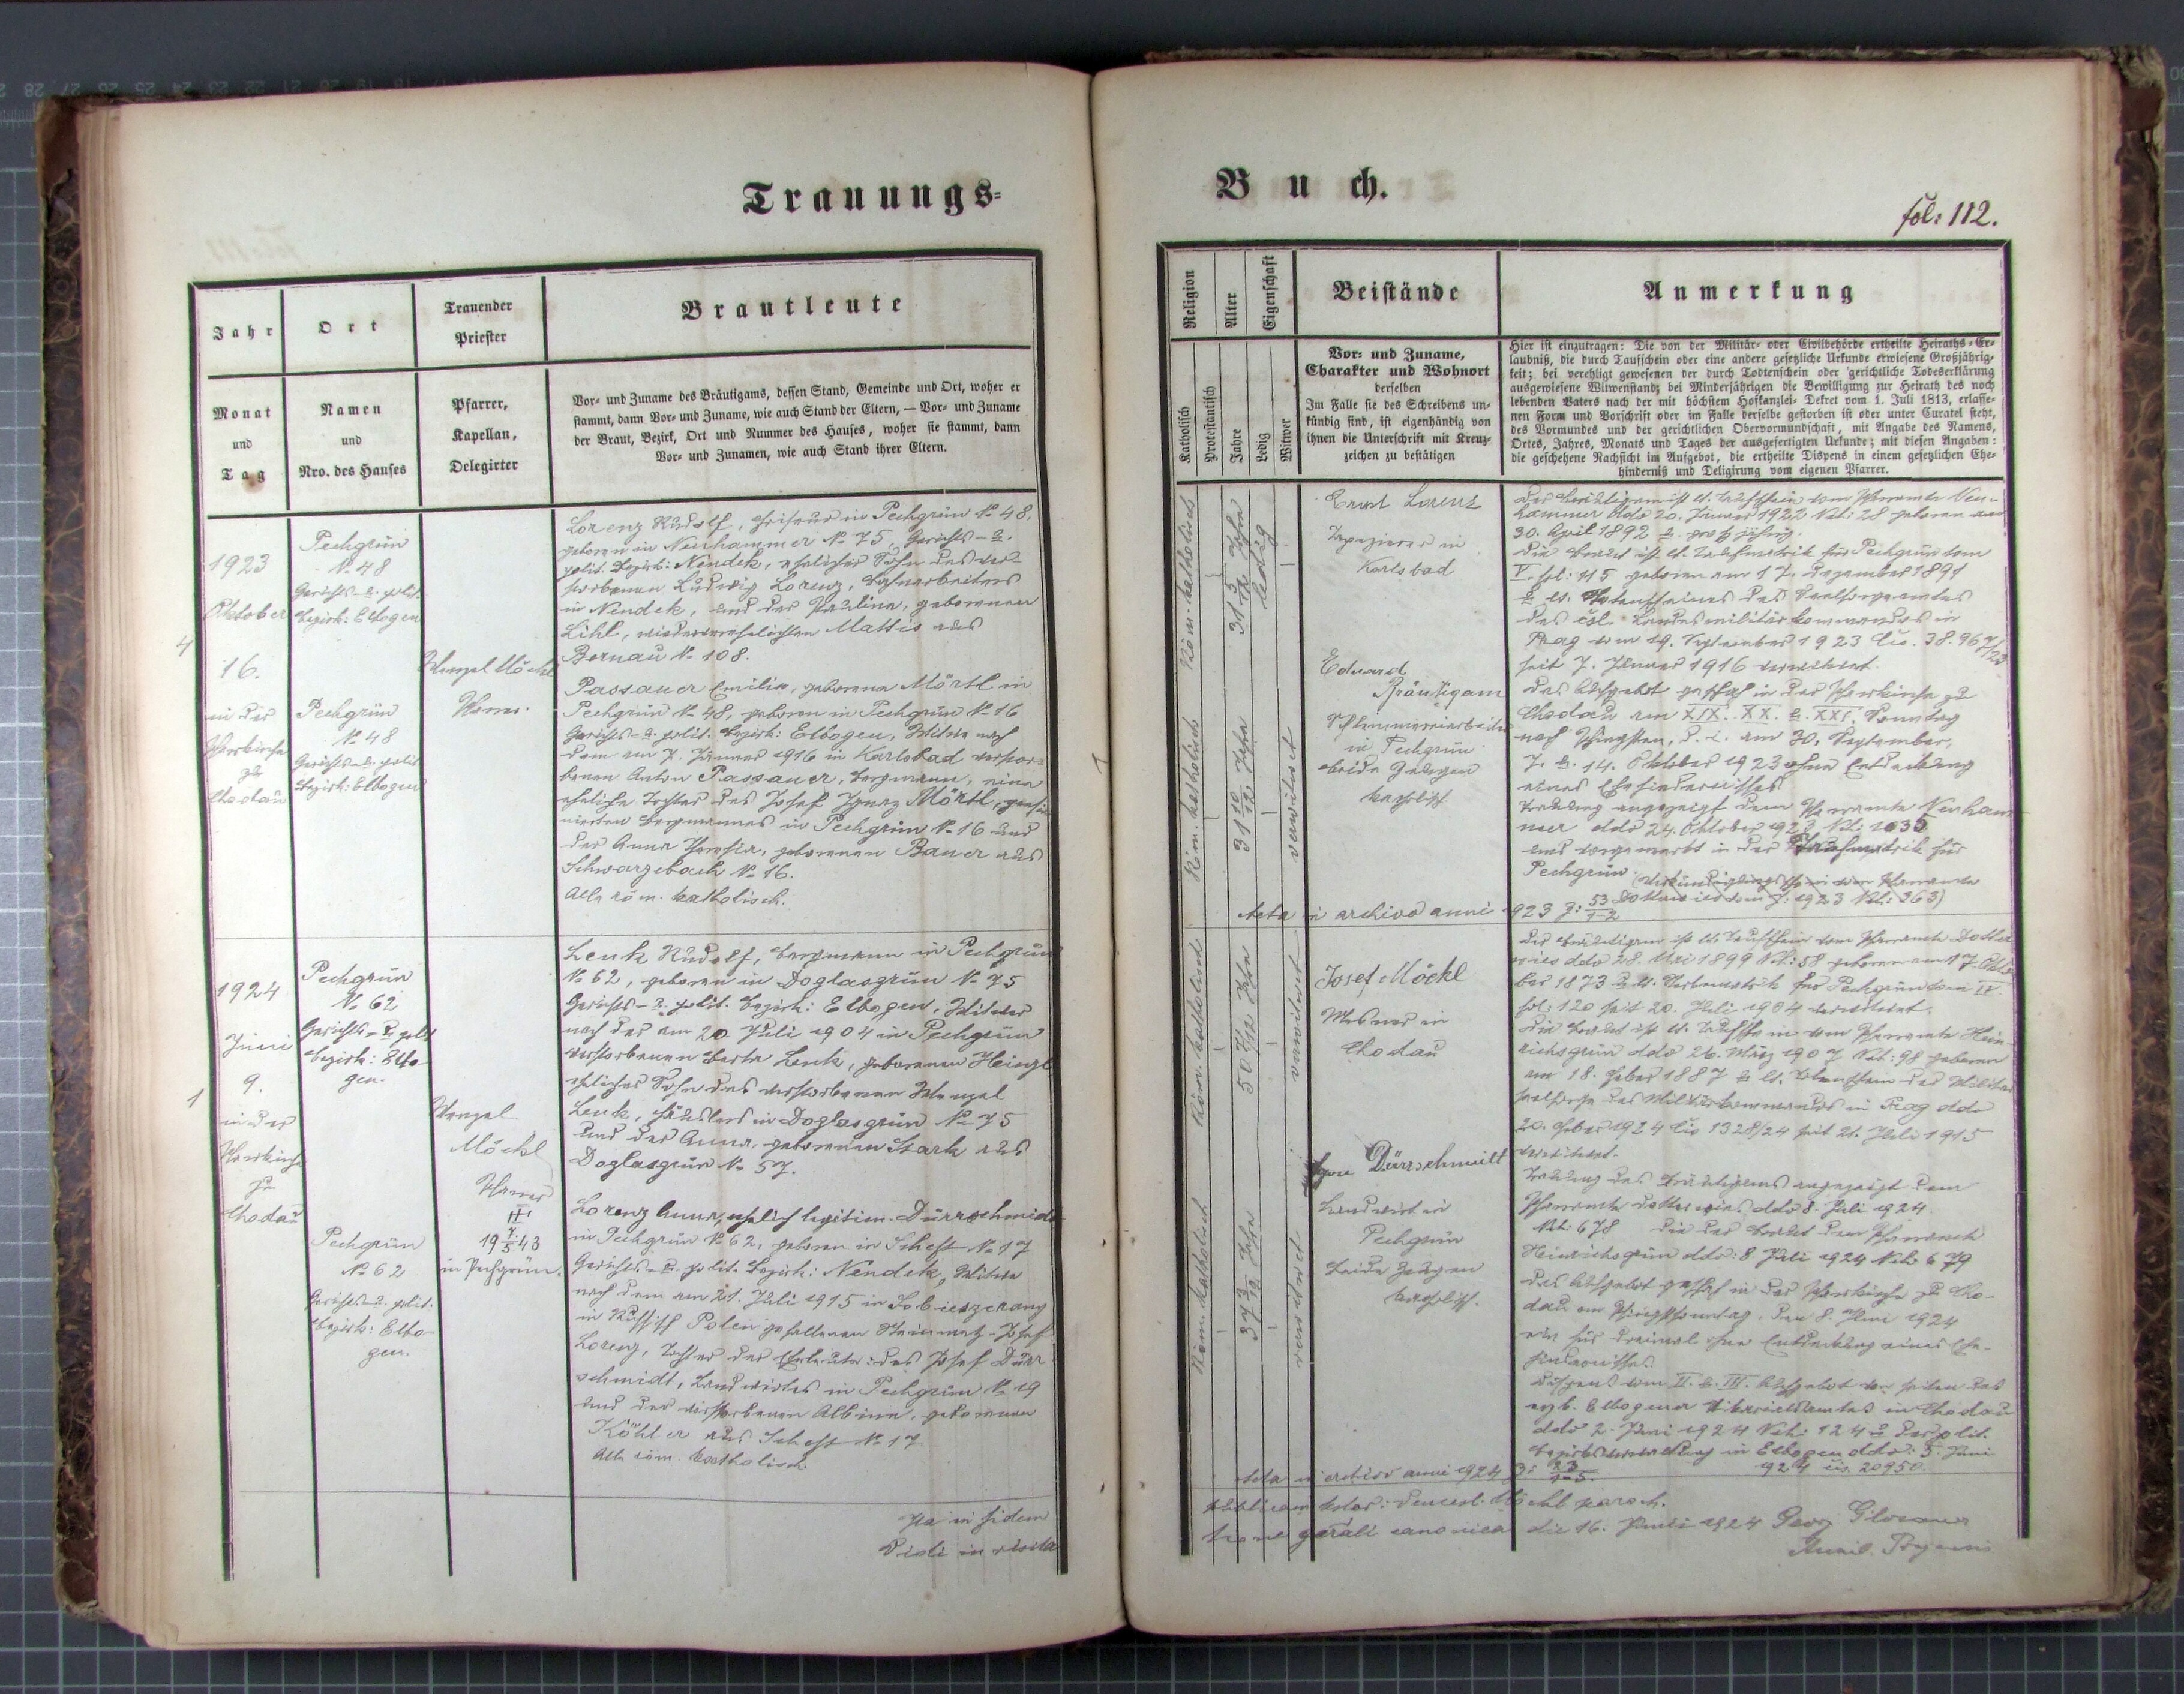 Trauungs-
Jahr
Monat
und
Tag
Ort
Namen
und
Nro. des Hauses
Trauender
Priester
Pfarrer,
Kapellan,
Delegirter
Brautleute
Vor- und Zuname des Bräutigams, dessen Stand, Gemeinde und Ort, woher er
stammt, dann Vor- und Zuname, wie auch Stand der Eltern, — Vor- und Zuname
der Braut, Bezirk, Ort und Nummer des Hauses, woher sie stammt, dann
Vor- und Zunamen, wie auch Stand ihrer Eltern.
4
1923
Oktober
16.
in der
Pfarrkirche
zu
Chodau
Pechgrün
№ 48
Gerichts- u. polit.
Bezirk: Elbogen
Pechgrün
№ 48
Gerichts- u. polit.
Bezirk: Elbogen
Wenzel Möckl
Pfarrer.
Lorenz Rudolf, Friseur in Pechgrün № 48,
geboren in Neuhammer № 75, Gerichts- u.
polit. Bezirk: Neudek, ehelicher Sohn des ver-
storbenen Ludwig Lorenz,
in Neudek, und der Paulina, geborenen
Lihl, wiederverehelichten Mattis aus
Bernau № 108.
Passauer Emilie, geborene Mörtl in
Pechgrün № 48, geboren in Pechgrün № 16
Gerichts- u. polit. Bezirk: Elbogen, Witwe nach
dem am 7. Jänner 1916 in Karlsbad verstor-
benen Anton Passauer, Bergmann, eine
eheliche Tochter des Josef Ignaz Mörtl, pensio-
nierten Bergmannes in Pechgrün № 16 und
der Anna Theresia, geborenen Bauer aus
Schwarzebach № 16.
Alle röm. katholisch.
1
1924
Juni
9.
in der
Pfarrkirche
zu
Chodau
Pechgrün
№ 62
Gerichts- u. polit.
Bezirk: Elbo-
gen.
Pechgrün
№ 62
Gerichts- u. polit.
Bezirk: Elbo-
gen.
Wenzel
Möckl
Pfarrer
19 7./5. 43
in Pechgrün.
Leuk Rudolf, Bergmann in Pechgrün
№ 62, geboren in Doglasgrün № 75
Gerichts- u. polit. Bezirk: Elbogen, Witwer
nach der am 20. Juli 1904 in Pechgrün
verstorbenen Berta Leuk, geborenen Heinzl
ehelicher Sohn des verstorbenen Wenzel
Leuk, Häuslers in Doglasgrün № 75
und der Anna, geborenen Stark aus
Doglasgrün № 57.
Lorenz Anna, ehelich legitim. Dürrschmidt
in Pechgrün № 62, geboren in Schest № 17
Gerichts- u. polit. Bezirk: Neudek, Witwe
nach dem am 21. Juli 1915 in
in Russisch Polen gefallenen Steinmetz Josef
Lorenz, Tochter der Eheleute: des Josef Dürr-
schmidt, Landwirtes in Pechgrün № 19
und der verstorbenen Albina, geborenen
Köhler aus Schest № 17
Alle röm. katholisch.
Ita in fidem
Vidi in visita
Buch.
fol: 112.
Religion
Katholisch
Protestantisch
Alter
Jahre
Eigenschaft
Ledig
Witwer
Beistände
Vor- und Zuname,
Charakter und Wohnort
derselben
Im Falle sie des Schreibens un-
kündig sind, ist eigenhändig von
ihnen die Unterschrift mit Kreuz-
zeichen zu bestätigen
Anmerkung
Hier ist einzutragen: Die von der Militär- oder Civilbehörde ertheilte Heiraths-Er-
laubniß, die durch Taufschein oder eine andere gesetzliche Urkunde erwiesene Großjährig-
keit; bei verehligt gewesenen der durch Todtenschein oder gerichtliche Todeserklärung
ausgewiesene Witwenstand; bei Minderjährigen die Bewilligung zur Heirath des noch
lebenden Vaters nach der mit höchstem Hofkanzlei-Dekret vom 1. Juli 1813, erlasse-
nen Form und Vorschrift oder im Falle derselbe gestorben ist oder unter Curatel steht,
des Vormundes und der gerichtlichen Obervormundschaft, mit Angabe des Namens,
Ortes, Jahres, Monats und Tages der ausgefertigten Urkunde; mit diesen Angaben:
die geschehene Nachsicht im Aufgebot, die ertheilte Dispens in einem gesetzlichen Ehe-
hinderniß und Deligirung vom eigenen Pfarrer.
Röm. katholisch
31 5/12 Jahre
ledig
Röm. katholisch
31 10/12 Jahre
verwitwet
Ernst Lorenz
Tapezierer in
Karlsbad
Eduard
Bräutigam
in Pechgrün
beide Zeugen
katholisch
Der Bräutigam ist lt. Taufschein vom Pfarramte Neu-
hammer ddo 20. Jänner 1922 Nrh: 28 geboren am
30. April 1892 u. großjährig.
Die Braut ist lt. Taufmatrik für Pechgrün tom
V. fol: 115 geboren am 17. Dezember 1891
u. lt. Totenscheines des Seelsorgeamtes
des čsl. Landesmilitärkommandos in
Prag vom 19. September 1923
seit 7. Jänner 1916 verwitwet.
Das Aufgebot geschah in der Pfarrkirche zu
Chodau am XIX. XX. u. XXI. Sonntag
nach Pfingsten, d. i. am 30. September,
7. u. 14. Oktober 1923 ohne Entdeckung
eines Ehehindernisses
Trauung angezeigt dem Pfarramte Neuham-
mer ddo 24. Oktober 1923
und vorgemerkt in der Taufmatrik für
Pechgrün.
Acta in archivo anni 1923 J: 53/1-2
Röm. katholisch
50 7/12 Jahre
verwitwet
Röm. katholisch
37 3/12 Jahre
verwitwet
Josef Möckl
Mesner in
Chodau
Dürrschmidt
Landwirt in
Pechgrün
beide Zeugen
katholisch.
Der Bräutigam ist lt. Taufschein vom Pfarramte Dotter-
wies ddo 28. Mai 1899 Nrh: 58 geboren am 17. Okto-
ber 1873 u. lt. Sterbematrik für Pechgrün tom IV
fol: 120 seit 20. Juli 1904 verwitwet.
Die Braut ist lt. Taufschein vom Pfarramte Hein-
richsgrün ddo 26. März 1907 Nrh: 98 geboren
am 18. Feber 1887 u. lt. Totenschein der Militär-
seelsorge des Militärkommandos in Prag ddo
20. Feber 1924 čís 1328/24 seit 21. Juli 1915
verwitwet.
Trauung des Bräutigams angezeigt dem
Pfarramte Dotterwies ddo 8. Juli 1924
Nrh: 678 die der Braut dem Pfarramte
Heinrichsgrün ddo: 8 Juli 1924 Nrh 679
Das Aufgebot geschah in der Pfarrkirche zu Cho-
dau am Pfingstsonntag, den 8. Juni 1924
ein für dreimal ohne Entdeckung eines Ehe-
hindernisses
Dispens vom II. u. III. Aufgebot von seiten des
erzb. Elbogner Vikariatsamtes in Chodau
ddo 2. Juni 1924 Nrh: 124 u. der polit.
Bezirksverwaltung in Elbogen ddo: 5. Juni
1924 čís. 20950.
Acta in archivo anni 1924 J: 23/1-5.
Wencesl. Möckl paroch.
canonica die 16. Junii 1924 Georg